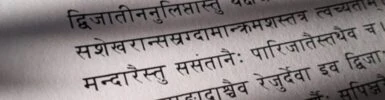 द्विजातीननुलिप्तास्तु
सशेखरान्सस्रग्दामान्क्रमशस्तत्र
मन्दारैस्तु ससंतानैः पारिजातैस्तथैव च
रेजुर्देवा इव द्विजा